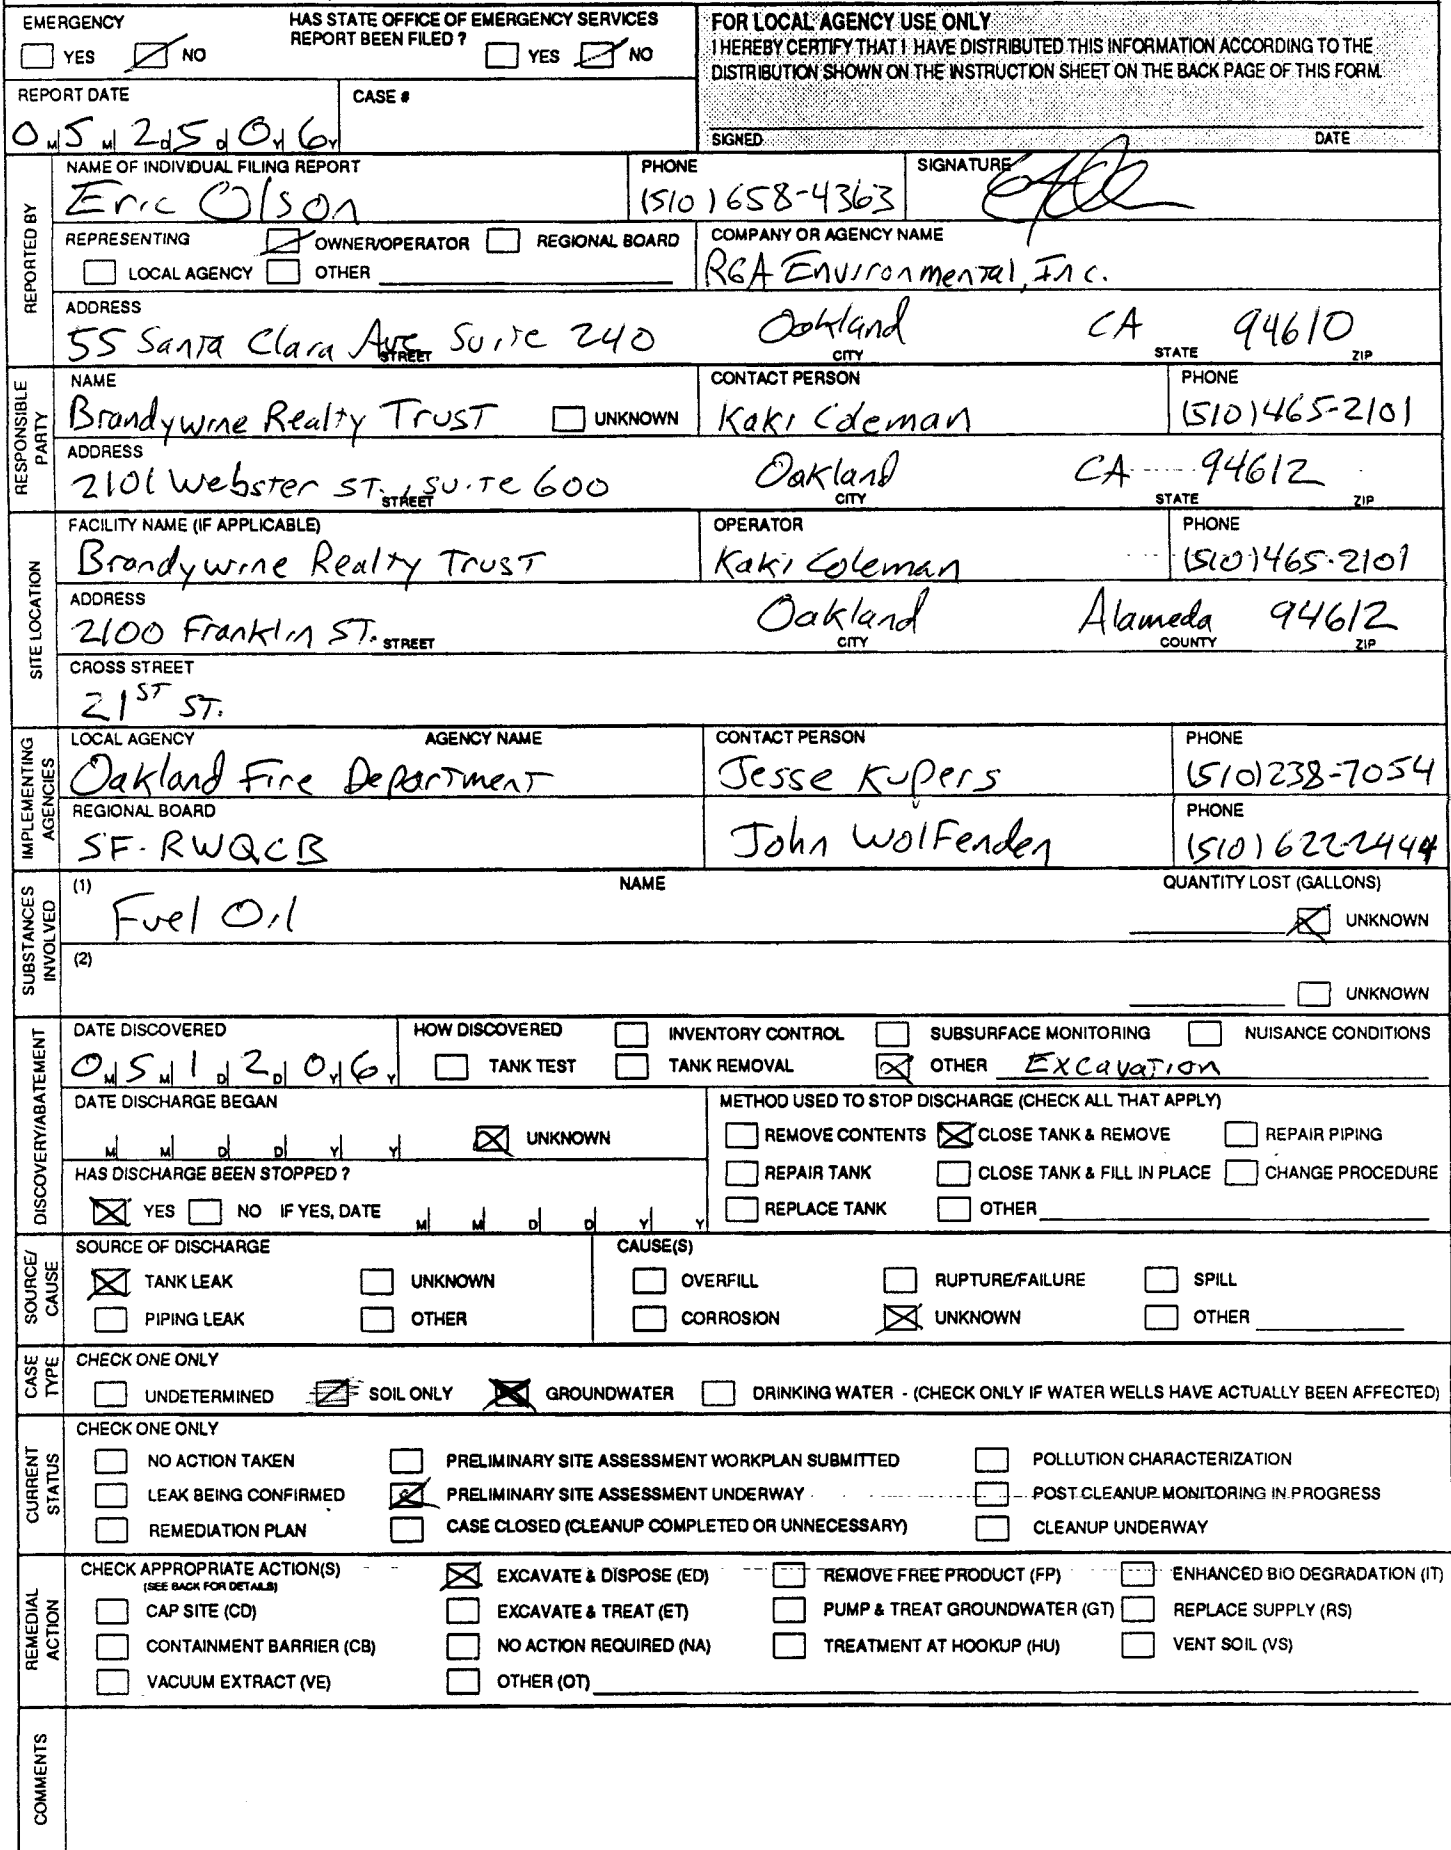 EMERGENCY
YES NO
HAS STATE OFFICE OF EMERGENCY SERVICES
REPORT BEEN FILED ?
YES NO
FOR LOCAL AGENCY USE ONLY
I HEREBY CERTIFY THAT I HAVE DISTRIBUTED THIS INFORMATION ACCORDING TO THE
DISTRIBUTION SHOWN ON THE INSTRUCTION SHEET ON THE BACK PAGE OF THIS FORM.
REPORT DATE
0 M 5 M 2 D 5 D 0 Y 6 Y
CASE #
SIGNED DATE
REPORTED BY
NAME OF INDIVIDUAL FILING REPORT
Eric Olson
PHONE
(510) 658-4363
SIGNATURE
REPRESENTING OWNER/OPERATOR REGIONAL BOARD
LOCAL AGENCY OTHER
COMPANY OR AGENCY NAME
RGA Environmental, Inc.
ADDRESS
55 Santa Clara Ave Suite 240 Oakland CA 94610
STREET CITY STATE ZIP
RESPONSIBLE
PARTY
NAME
Brandywine Realty Trust UNKNOWN
CONTACT PERSON
Kaki Coleman
PHONE
(510) 465-2101
ADDRESS
2101 Webster ST., Suite 600 Oakland CA 94612
STREET CITY STATE ZIP
SITE LOCATION
FACILITY NAME (IF APPLICABLE)
Brandywine Realty Trust
OPERATOR
Kaki Coleman
PHONE
(510) 465-2101
ADDRESS
2100 Franklin ST. Oakland Alameda 94612
STREET CITY COUNTY ZIP
CROSS STREET
21ST ST.
IMPLEMENTING
AGENCIES
LOCAL AGENCY AGENCY NAME
Oakland Fire Department
CONTACT PERSON
Jesse Kupers
PHONE
(510) 238-7054
REGIONAL BOARD
SF-RWQCB
John Wolfenden
PHONE
(510) 622-2444
SUBSTANCES
INVOLVED
(1) NAME QUANTITY LOST (GALLONS)
Fuel Oil
UNKNOWN
(2)
UNKNOWN
DISCOVERY/ABATEMENT
DATE DISCOVERED
0 M 5 M 1 D 2 D 0 Y 6 Y
HOW DISCOVERED INVENTORY CONTROL SUBSURFACE MONITORING NUISANCE CONDITIONS
TANK TEST TANK REMOVAL OTHER Excavation
DATE DISCHARGE BEGAN
M M D D Y Y UNKNOWN
METHOD USED TO STOP DISCHARGE (CHECK ALL THAT APPLY)
REMOVE CONTENTS CLOSE TANK & REMOVE REPAIR PIPING
REPAIR TANK CLOSE TANK & FILL IN PLACE CHANGE PROCEDURE
REPLACE TANK OTHER
HAS DISCHARGE BEEN STOPPED ?
YES NO IF YES, DATE M M D D Y Y
SOURCE/
CAUSE
SOURCE OF DISCHARGE
TANK LEAK UNKNOWN
PIPING LEAK OTHER
CAUSE(S)
OVERFILL RUPTURE/FAILURE SPILL
CORROSION UNKNOWN OTHER
CASE
TYPE
CHECK ONE ONLY
UNDETERMINED SOIL ONLY GROUNDWATER DRINKING WATER - (CHECK ONLY IF WATER WELLS HAVE ACTUALLY BEEN AFFECTED)
CURRENT
STATUS
CHECK ONE ONLY
NO ACTION TAKEN PRELIMINARY SITE ASSESSMENT WORKPLAN SUBMITTED POLLUTION CHARACTERIZATION
LEAK BEING CONFIRMED PRELIMINARY SITE ASSESSMENT UNDERWAY POST CLEANUP MONITORING IN PROGRESS
REMEDIATION PLAN CASE CLOSED (CLEANUP COMPLETED OR UNNECESSARY) CLEANUP UNDERWAY
REMEDIAL
ACTION
CHECK APPROPRIATE ACTION(S)
(SEE BACK FOR DETAILS)
EXCAVATE & DISPOSE (ED) REMOVE FREE PRODUCT (FP) ENHANCED BIO DEGRADATION (IT)
CAP SITE (CD) EXCAVATE & TREAT (ET) PUMP & TREAT GROUNDWATER (GT) REPLACE SUPPLY (RS)
CONTAINMENT BARRIER (CB) NO ACTION REQUIRED (NA) TREATMENT AT HOOKUP (HU) VENT SOIL (VS)
VACUUM EXTRACT (VE) OTHER (OT)
COMMENTS